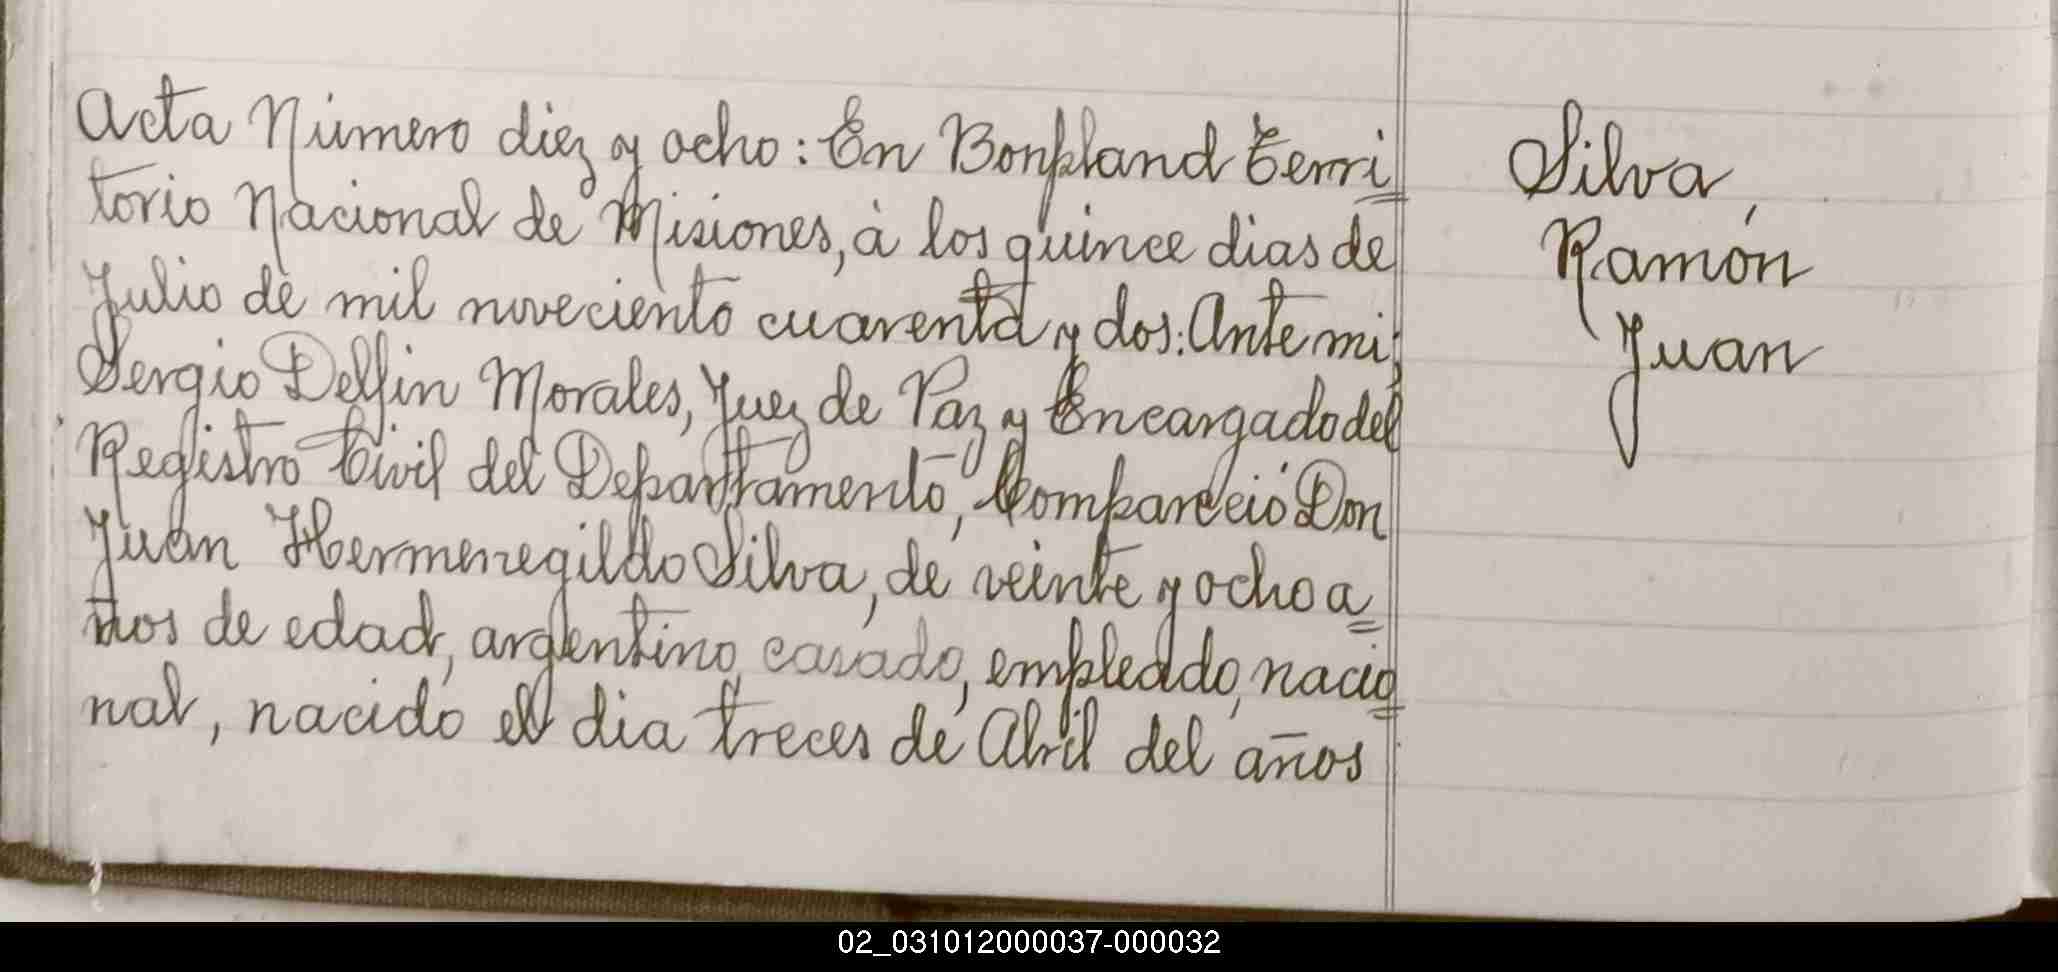 Acta Número diez y ocho: En Bonpland Terri
torio Nacional de Misiones, à los quince dias de
Julio de mil noveciento cuarenta y dos: Ante mi,
Sergio Delfin Morales, Juez de Paz y Encargado del
Registro Civil del Departamento, Compareció Don
Juan Hermenegildo Silva, de veinte y ocho a
ños de edad, argentino, casado, empleado, nacio
nal, nacido el dia treces de Abril del años
Silva,
Ramón
Juan
02_031012000037-000032